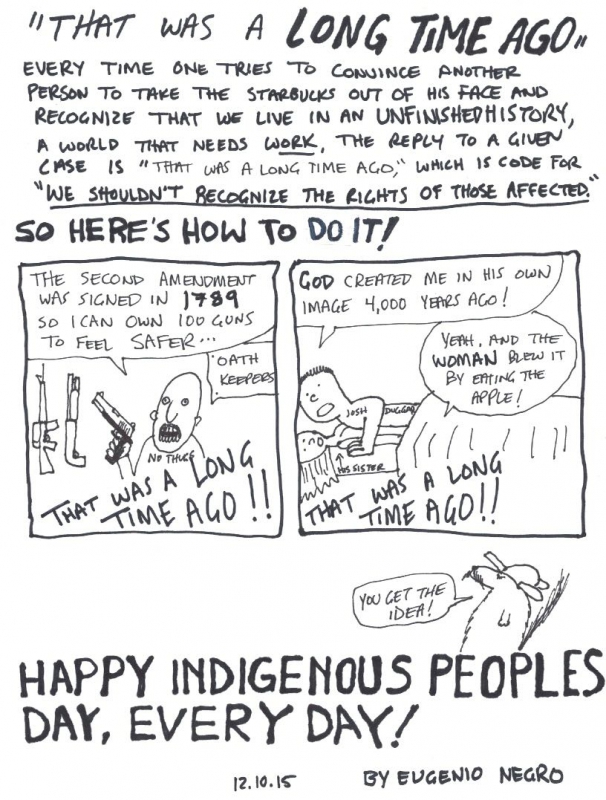 "THAT WAS A LONG TIME AGO"
EVERY TIME ONE TRIES TO CONVINCE ANOTHER
PERSON TO TAKE THE STARBUCKS OUT OF HIS FACE AND
RECOGNIZE THAT WE LIVE IN AN UNFINISHED HISTORY,
A WORLD THAT NEEDS WORK, THE REPLY TO A GIVEN
CASE IS "THAT WAS A LONG TIME AGO," WHICH IS CODE FOR
"WE SHOULDN'T RECOGNIZE THE RIGHTS OF THOSE AFFECTED."
SO HERE'S HOW TO DO IT!
THE SECOND AMENDMENT
WAS SIGNED IN 1789
SO I CAN OWN 100 GUNS
TO FEEL SAFER...
OATH
KEEPERS
NO THUGS
THAT WAS A LONG
TIME AGO!!
GOD CREATED ME IN HIS OWN
IMAGE 4,000 YEARS AGO!
YEAH, AND THE
WOMAN BLEW IT
BY EATING THE
APPLE!
JOSH DUGGAR
HIS SISTER
THAT WAS A LONG
TIME AGO!!
YOU GET THE
IDEA!
HAPPY INDIGENOUS PEOPLES
DAY, EVERY DAY!
12.10.15 BY EUGENIO NEGRO